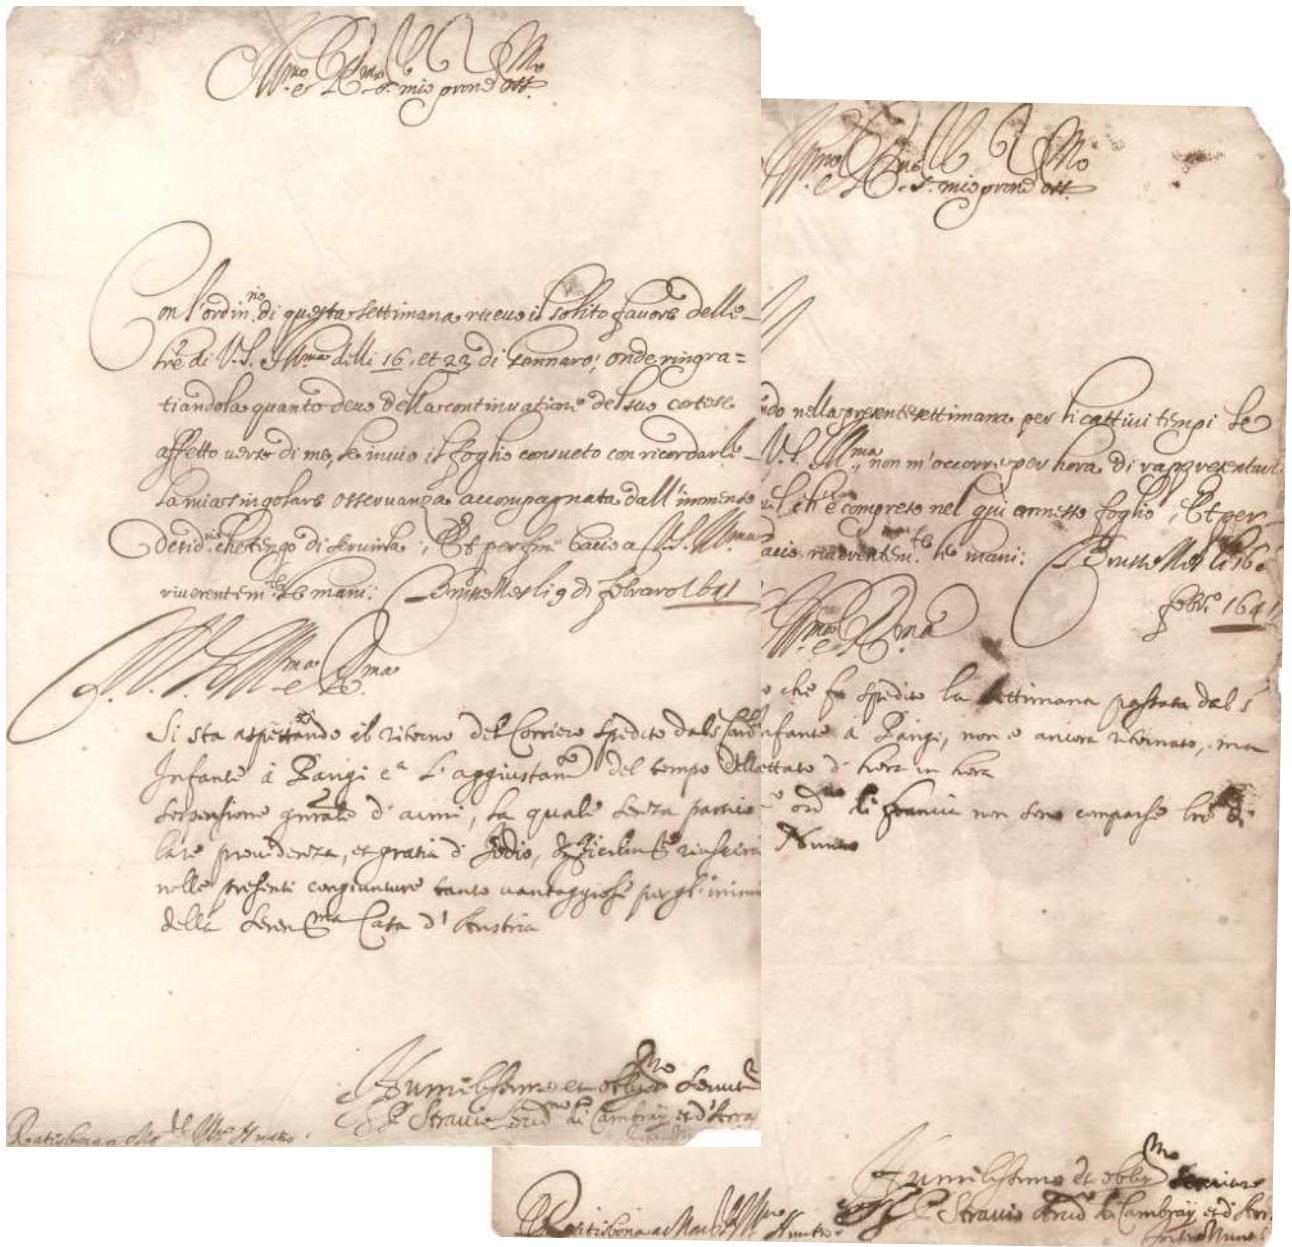 Ill.mo e R.mo S.r mio pron Oss.mo
Con l'ordin.rio di questa settimana ricevo il solito favore delle
lre di V.S. Ill.ma delli 16. et 23 di Gennaro; onde ringra=
tiandola quanto devo della continuatione del suo cortese
affetto verso di me, le invio il foglio consueto con ricordarle
la mia singolare osservanza accompagnata dall'immenso
che tengo di servirla; Et per fine bacio a V.S. Ill.ma
riverentem.te le mani. Brusselles li 9 di febraro 1641
V.S. Ill.ma e R.ma
Si sta aspettando il ritorno del Corriero spedito dal S.
Infante à Parigi c.a l'aggiustam.to del tempo della
sospensione gnrale d'armi, la quale senza partico
lare providenza, et gratia di riuscirà
nelle presenti congiunture tanto vantaggiose per gl'inimi
della Seren.ma Casa d'Austria
Humilissimo et obblig.mo Servit
P. Stravio Arcid.no di Cambray et d'Arra
Ratisbona Mg.r Nuntio
Ill.mo e R.mo S.r mio pron Oss.mo
do nella presente settimana per li cattivi tempi le
V.S. Ill.ma, non m'occorre per hora di rappresentarli
ch'è compreso nel qui annesso foglio; Et per
bacio riverentem.te le mani. Brusselles li 16
febr.o 1641
Ill.ma e R.ma
o che fu spedito la settimana passata dal S
Infante à Parigi, non è ancora ritornato, ma
ettato d'hora in hora
ord.rio di Francia non sono comparse lre di
Nuntio
Humilissimo et obblig.mo Servitore
P. Stravio Arcid.no di Cambray et d'Arr
Internuntio
Ratisbona Nuntio